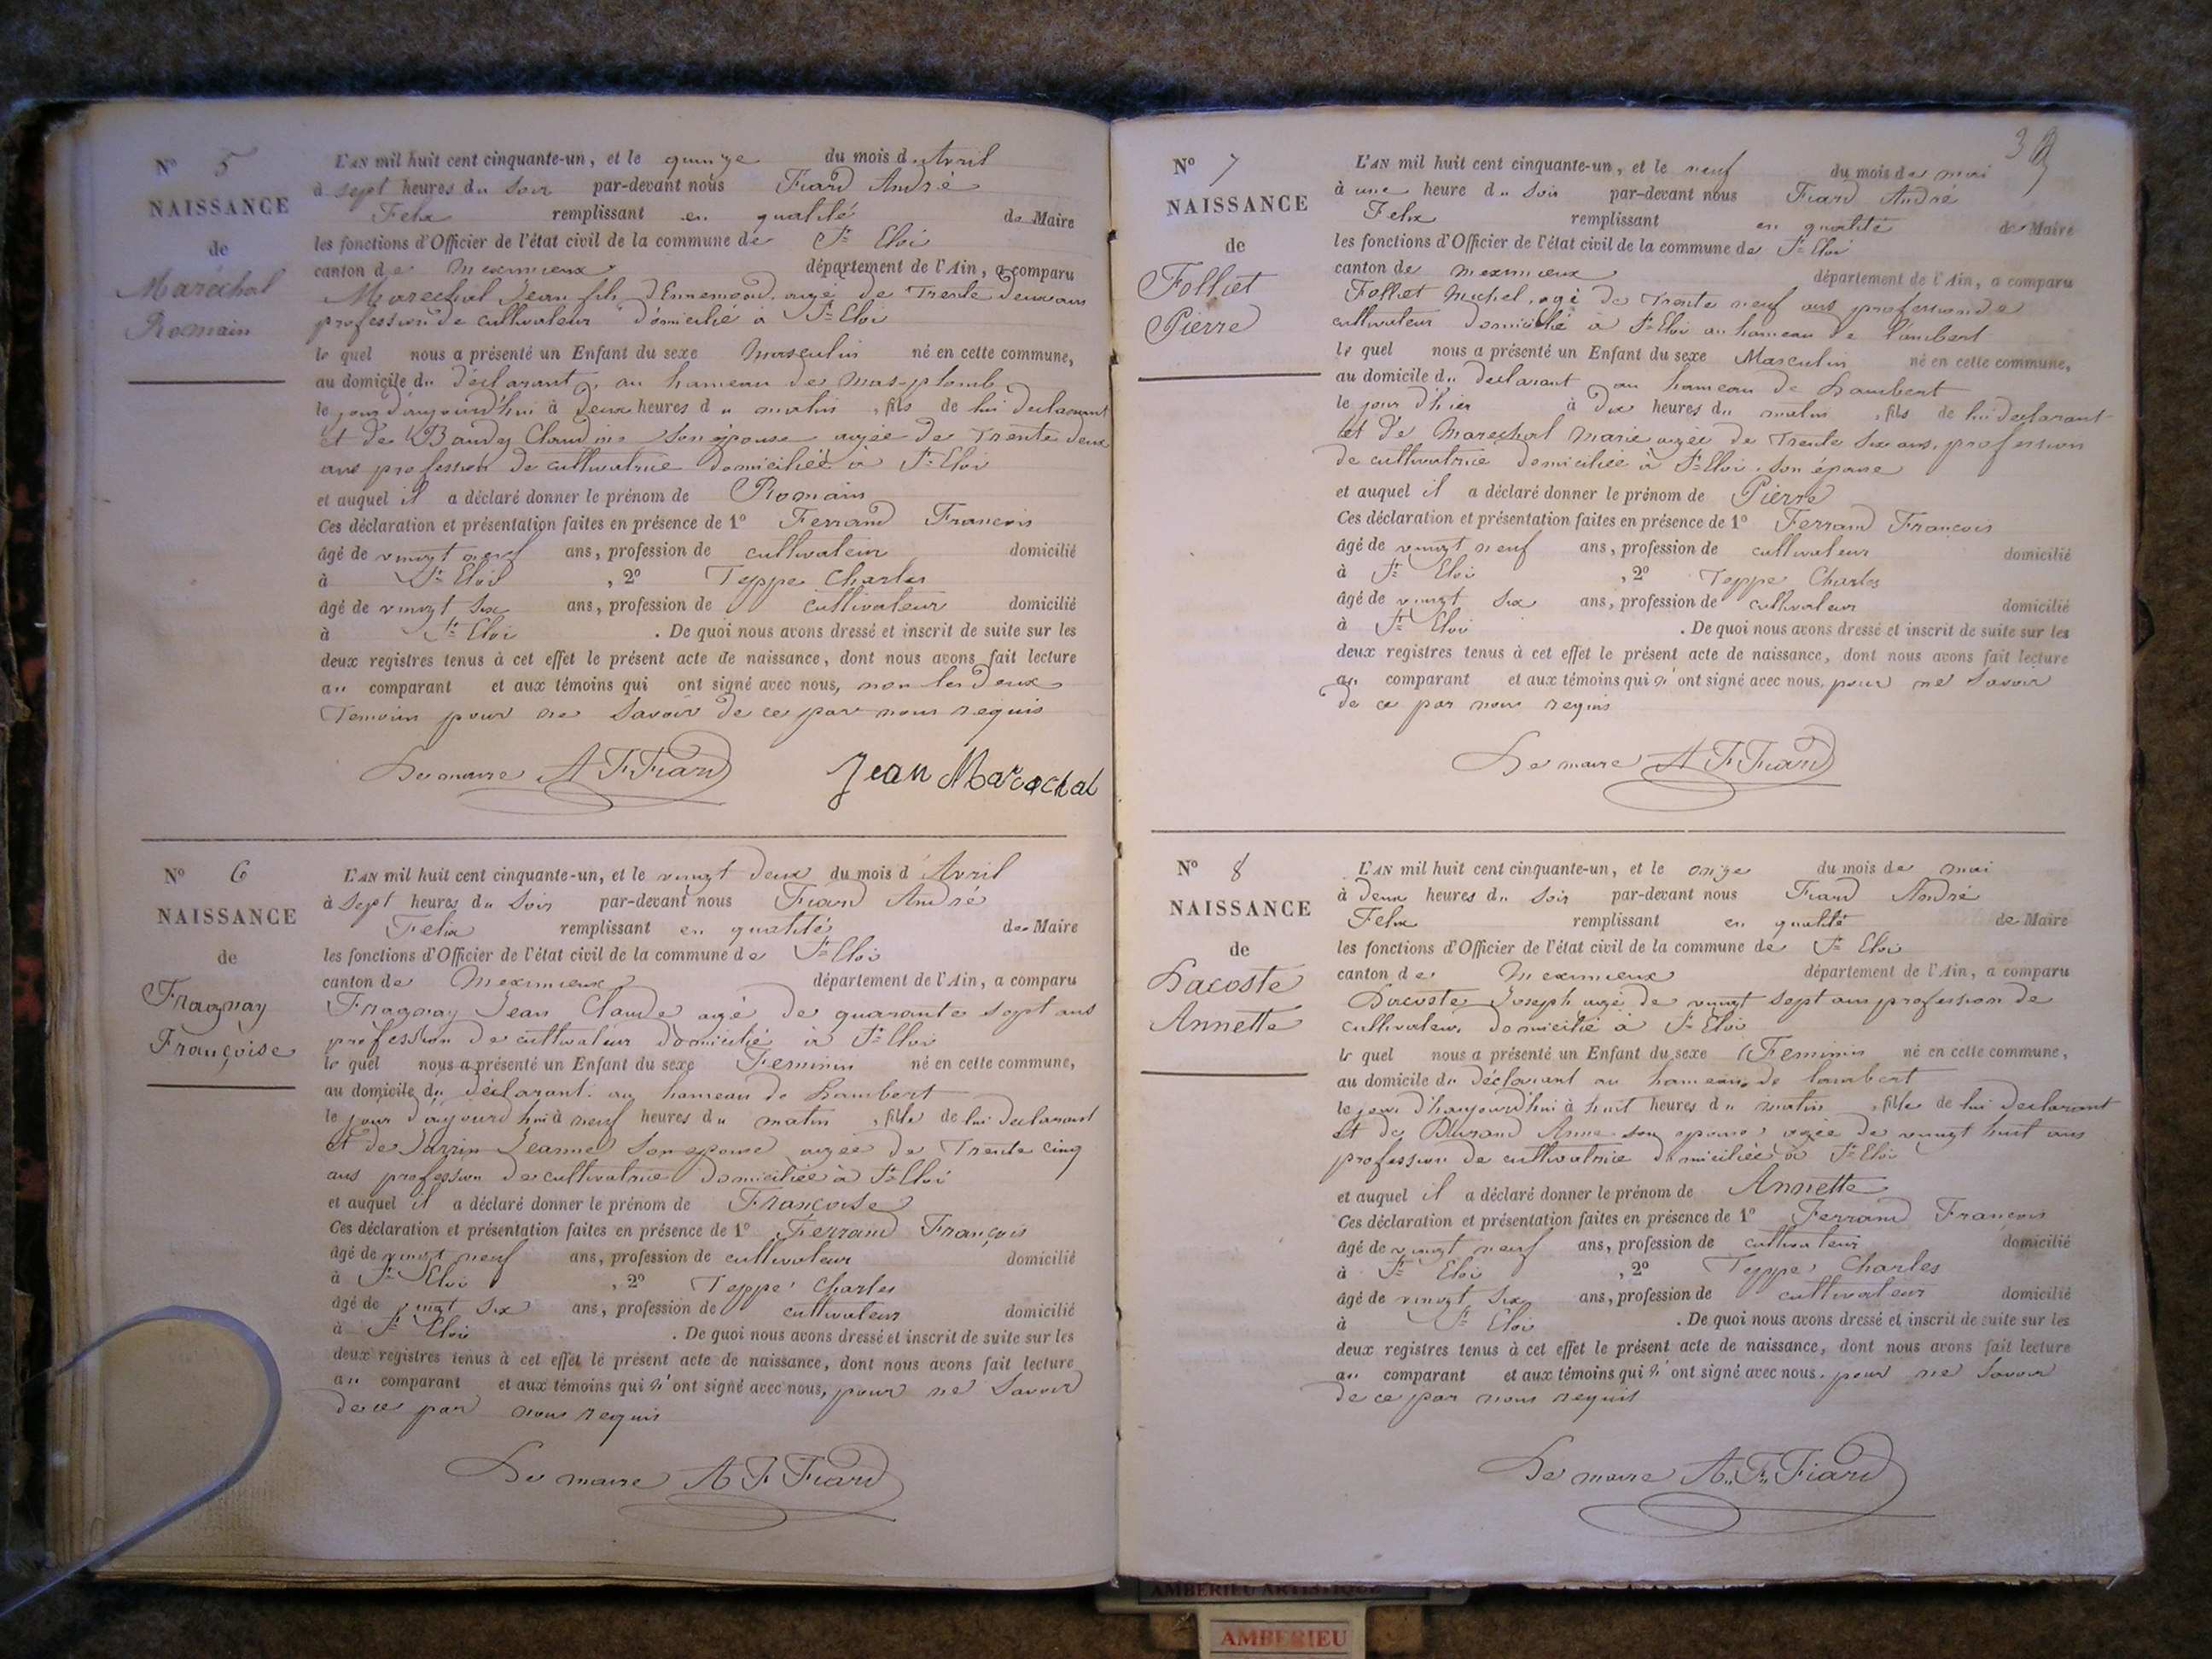 N° 5
NAISSANCE
de
Maréchal
Romain
L'AN mil huit cent cinquante-un, et le quinze du mois d'Avril
à sept heures du soir par-devant nous Fiard André
Felix remplissant en qualité de Maire
les fonctions d'Officier de l'état civil de la commune de St Eloi
canton de Meximieux département de l'Ain, a comparu
Marechal Jean fils d'Ennemond, agé de Trente deux ans
profession de cultivateur domicilié a St Eloi
le quel nous a présenté un Enfant du sexe Masculin né en cette commune,
au domicile du déclarant, au hameau de Mas-plomb
le jour d'aujourd'hui à deux heures du matin, fils de lui declarant
et de Baudy Claudine son épouse agée de Trente deux
ans profession de cultivatrice domiciliée à St Eloi
et auquel il a déclaré donner le prénom de Romain
Ces déclaration et présentation faites en présence de 1° Ferrand François
âgé de vingt neuf ans, profession de cultivateur domicilié
à St Eloi, 2° Teppe Charles
âgé de vingt six ans, profession de cultivateur domicilié
à St Eloi. De quoi nous avons dressé et inscrit de suite sur les
deux registres tenus à cet effet le présent acte de naissance, dont nous avons fait lecture
au comparant et aux témoins qui ont signé avec nous, non les deux
Temoins pour ne savoir de ce par nous requis
Le maire A F Fiard Jean Marechal
N° 6
NAISSANCE
de
Fragnay
Françoise
L'AN mil huit cent cinquante-un, et le vingt deux du mois d'Avril
à sept heures du soir par-devant nous Fiard André
Felix remplissant en qualité de Maire
les fonctions d'Officier de l'état civil de la commune de St Eloi
canton de Meximieux département de l'Ain, a comparu
Fragnay Jean Claude agé de quarante sept ans
profession de cultivateur domicilié à St Eloi
le quel nous a présenté un Enfant du sexe Feminin né en cette commune,
au domicile du déclarant. au hameau de Lambert
le jour d'aujourd'hui à neuf heures du matin, fille de lui declarant
et de Jarrin Jeanne son epouse agée de Trente cinq
ans profession de cultivatrice domiciliée à St Eloi
et auquel il a déclaré donner le prénom de Françoise
Ces déclaration et présentation faites en présence de 1° Ferrand François
âgé de vingt neuf ans, profession de cultivateur domicilié
à St Eloi, 2° Teppe Charles
âgé de vingt six ans, profession de cultivateur domicilié
à St Eloi. De quoi nous avons dressé et inscrit de suite sur les
deux registres tenus à cet effet le présent acte de naissance, dont nous avons fait lecture
au comparant et aux témoins qui n'ont signé avec nous, pour ne savoir
de ce par nous requis
Le maire A F Fiard
N° 7
NAISSANCE
de
Folliet
Pierre
L'AN mil huit cent cinquante-un, et le neuf du mois de mai
à une heure du soir par-devant nous Fiard André
Felix remplissant en qualité de Maire
les fonctions d'Officier de l'état civil de la commune de St Eloi
canton de Meximieux département de l'Ain, a comparu
Folliet Michel, agé de Trente neuf ans profession de
cultivateur domicilié à St Eloi au hameau de Lambert
le quel nous a présenté un Enfant du sexe Masculin né en cette commune,
au domicile du declarant au hameau de Lambert
le jour d'hier à dix heures du matin, fils de lui declarant
et de Marechal Marie agée de Trente six ans, profession
de cultivatrice domiciliée à St Eloi. son épouse
et auquel il a déclaré donner le prénom de Pierre
Ces déclaration et présentation faites en présence de 1° Ferrand François
âgé de vingt neuf ans, profession de cultivateur domicilié
à St Eloi, 2° Teppe Charles
âgé de vingt six ans, profession de cultivateur domicilié
à St Eloi. De quoi nous avons dressé et inscrit de suite sur les
deux registres tenus à cet effet le présent acte de naissance, dont nous avons fait lecture
au comparant et aux témoins qui n'ont signé avec nous, pour ne savoir
de ce par nous requis
Le maire A F Fiard
N° 8
NAISSANCE
de
Lacoste
Annette
L'AN mil huit cent cinquante-un, et le onze du mois de mai
à deux heures du soir par-devant nous Fiard André
Felix remplissant en qualité de Maire
les fonctions d'Officier de l'état civil de la commune de St Eloi
canton de Meximieux département de l'Ain, a comparu
Lacoste Joseph agé de vingt sept ans profession de
cultivateur, domicilié à St Eloi
le quel nous a présenté un Enfant du sexe Feminin né en cette commune,
au domicile du déclarant au hameau de lambert
le jour d'haujourd'hui à huit heures du matin, fille de lui declarant
et de Durand Anne son epouse agée de vingt huit ans
profession de cultivatrice domiciliée à St Eloi
et auquel il a déclaré donner le prénom de Annette
Ces déclaration et présentation faites en présence de 1° Ferrand François
âgé de vingt neuf ans, profession de cultivateur domicilié
à St Eloi, 2° Teppe Charles
âgé de vingt six ans, profession de cultivateur domicilié
à St Eloi. De quoi nous avons dressé et inscrit de suite sur les
deux registres tenus à cet effet le présent acte de naissance, dont nous avons fait lecture
au comparant et aux témoins qui n'ont signé avec nous, pour ne savoir
de ce par nous requis
Le maire A. F. Fiard
AMBERIEU ARTISTIQUE
AMBERIEU